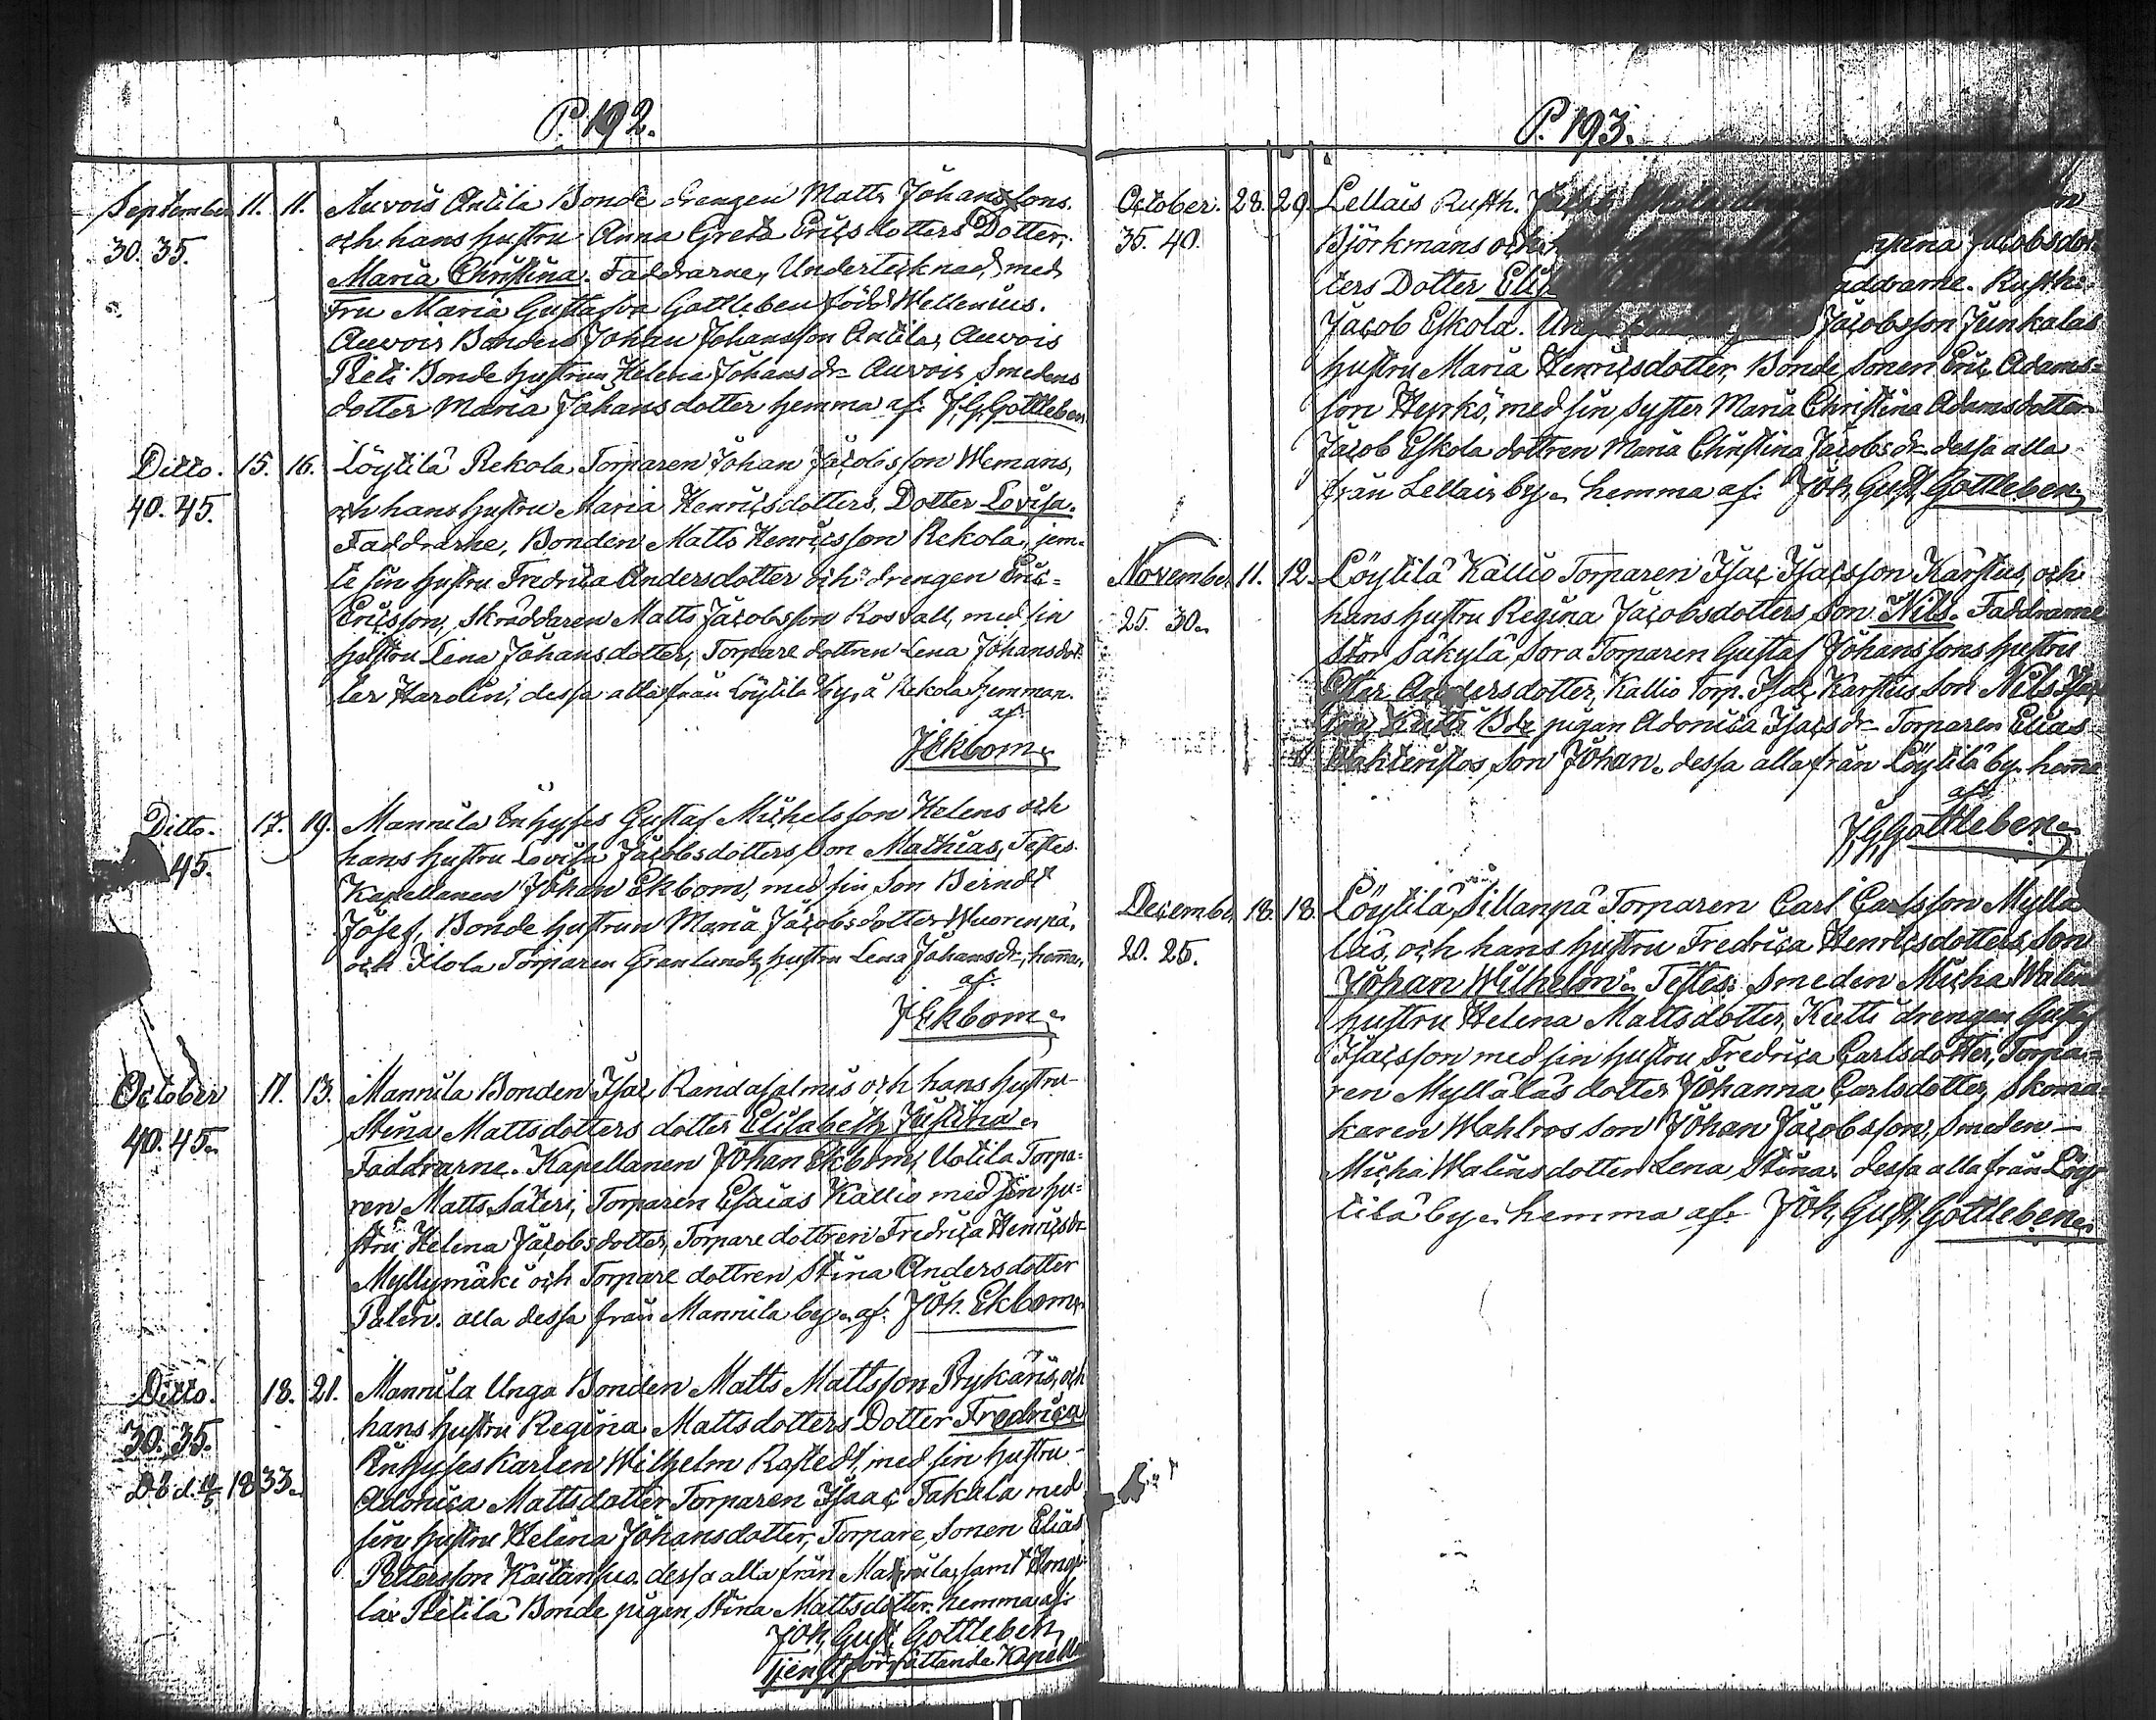 P. 192.
September 11. 11. Auvois Antila Bonde drengen Matts Johanssons.
och hans hustru Anna Greta Ericsdotters Dotter,
30. 35.
Maria Christina. Faddrarne, Undertecknad, med
Fru Maria Gustafva Gottleben född Wellenius.
Auvois Bonden Johan Johansson Antila, Auvois
Pieti Bonde hustrun Helena Johansdr. Auvois Smedens
dotter Maria Johansdotter hemma af: J.G. Gottleben
Ditto. 15. 16. Löytilä Rekola Torparen Johan Jacobsson Wemans,
40. 45. och hans hustru Maria Henricsdotters, Dotter Lovisa.
Faddrarne, Bonden Matts Henricsson Rekola, jem-
te sin hustru Fredrica Andersdotter och drengen Eric
Ericsson, Skräddaren Matts Jacobsson Rosvall, med sin
hustru Lena Johansdotter, Torpare dottren Lena Johansdot-
ter Harolin, dessa alla från Löytilä by, å Rekola hemman.
af:
J Ekbom.
Ditto. 17. 19. Mannila Inhyses Gustaf Michelsson Helens och
45. hans hustru Lovisa Jacobsdotters Son Mathias, Testes.
Kapellanen Johan Ekbom, med sin Son Berndt
Josef, Bonde hustrun Maria Jacobsdotter Wuorenpä,
och Ilola Torparen Granlunds hustru Lena Johansdr, hemma,
af:
J Ekbom.
October 11. 13. Mannila Bonden Isac Randasalmis och hans hustru
Stina Mattsdotters dotter Elisabeth Justina.
40. 45.
Faddrarne. Kapellanen Johan Ekbom, Uotila Torpa-
ren Matts Säteri, Torparen Esaias Kallio med sin hu-
stru Helena Jacobsdotter, Torpare dottren Fredrica Henricsdr
Myllymäki och Torpare dottren Stina Andersdotter
Palin. alla dessa från Mannila by. af: Joh. Ekbom.
Ditto. 18. 21. Mannila Unga Bonden Matts Mattsson Prykäris, och
hans hustru Regina Mattsdotters Dotter Fredrica
30. 35.
Inhyses Karlen Wilhelm Rostedt, med sin hustru
1833.
Adonica Mattsdotter Torparen Isaac Takala med
sin hustru Helena Johansdotter, Torpare Sonen Elias
Pettersson dessa alla från Mannila, samt
Pietilä Bonde pigan Stina Mattsdotter. hemma af:
Joh. Gust. Gottleben,
Tjenstförrättande Kapellan
P. 193.
October. 28. 29. Lellais Rusth.
35. 40. Björkmans och Jacobsdot-
ters Dotter Faddrarne. Rusth.
Jacob Eskola. Jacobsson Junkalas
hustru Maria Henricsdotter, Bonde Sonen Eric Adams-
son Heyrkö, med sin Syster Maria Christina Adamsdotter
Jacob Eskola dottren Maria Christina Jacobsdr dessa alla
från Lellais by. hemma af: Joh. Gust. Gottleben
November 11. 12. Löytilä Kallio Torparen Isac Isacsson Karstus, och
25. 30. hans hustru Regina Jacobsdotters, Son Nils. Faddrarne
Stor Säkylä, Sora Torparen Gustaf Johanssons hustru
Ester Andersdotter, Kallio Torp. Isac Karstus Son Nils Isac
son, Kutti Bde pigan Adonica Isacsdr Torparen Elias
Son Johan. dessa alla från Löytilä by. hemma
af:
J.G. Gottleben.
December 18. 18. Löytilä, Sillanpä Torparen Carl Carlsson Myllä
20. 25. läs, och hans hustru Fredrica Henricsdotters Son
Johan Wilhelm. Testes: Smeden Micha Walins
hustru Helena Mattsdotter, Kutti drengen Gustaf
Isacsson med sin hustru Fredrica Carlsdotter, Torpa-
ren Mylläläs dotter Johanna Carlsdotter, Skoma-
karen Wahlros son Johan Jacobsson, Smeden
Micha Walins dotter Lena Stina. dessa alla från Löy
tilä by. hemma af. Joh. Gust. Gottleben.